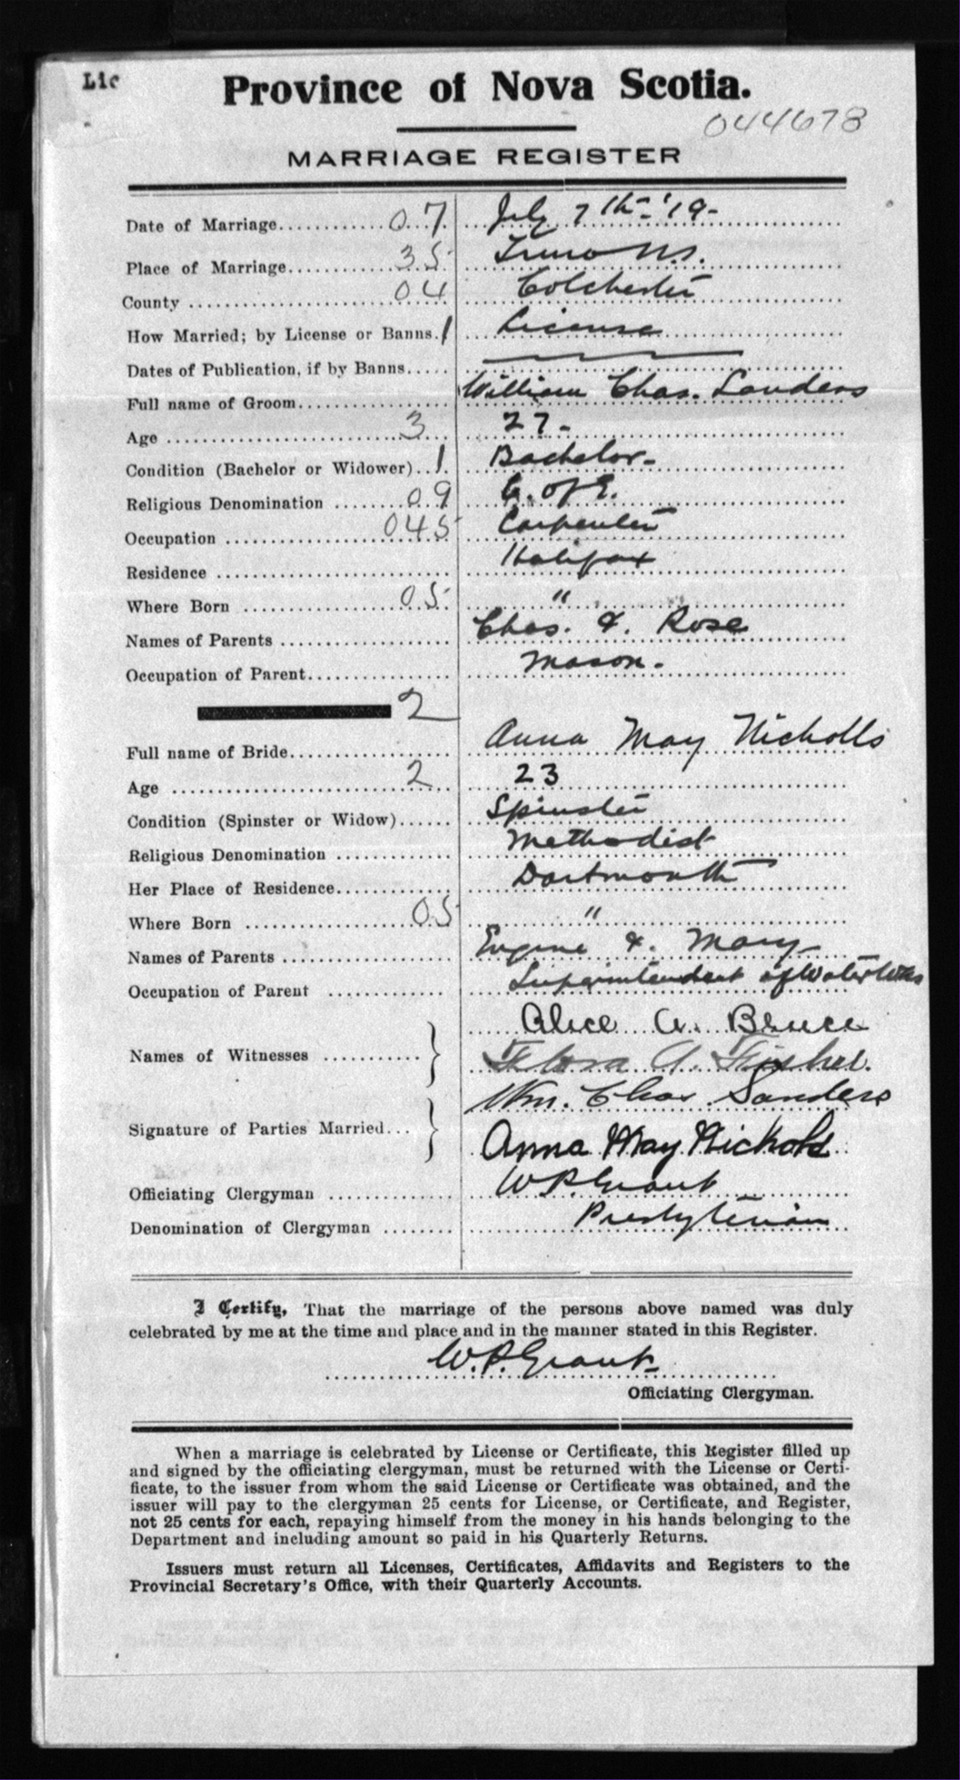 Lic
Province of Nova Scotia.
044678
MARRIAGE REGISTER
Date of Marriage............07. July 7th-'19-
Place of Marriage............35. Truro N.S.
County............04 Colchester
How Married; by License or Banns.1 License
Dates of Publication, if by Banns.....
Full name of Groom............ William Chas. Sanders
Age............3... 27-
Condition (Bachelor or Widower)..1. Bachelor-
Religious Denomination.......09 C. of E.
Occupation............045 Carpenter
Residence............ Halifax
Where Born............05. "
Names of Parents............ Chas. & Rose
Occupation of Parent............ Mason-
2
Full name of Bride............ Anna May Nicholls
Age............2 23
Condition (Spinster or Widow)...... Spinster
Religious Denomination............ Methodist
Her Place of Residence............ Dartmouth
Where Born............05 "
Names of Parents............ Eugene & Mary
Occupation of Parent............ Superintendent of Water Wks
Alice A. Bruce
Names of Witnesses...........}
Flora A. Fisher.
Wm. Chas Sanders
Signature of Parties Married...}
Anna May Nichols
Officiating Clergyman............ W P. Grant
Denomination of Clergyman........ Presbyterian
I Certify, That the marriage of the persons above named was duly
celebrated by me at the time and place and in the manner stated in this Register.
W. P. Grant
Officiating Clergyman.
When a marriage is celebrated by License or Certificate, this Register filled up
and signed by the officiating clergyman, must be returned with the License or Certi-
ficate, to the issuer from whom the said License or Certificate was obtained, and the
issuer will pay to the clergyman 25 cents for License, or Certificate, and Register,
not 25 cents for each, repaying himself from the money in his hands belonging to the
Department and including amount so paid in his Quarterly Returns.
Issuers must return all Licenses, Certificates, Affidavits and Registers to the
Provincial Secretary's Office, with their Quarterly Accounts.